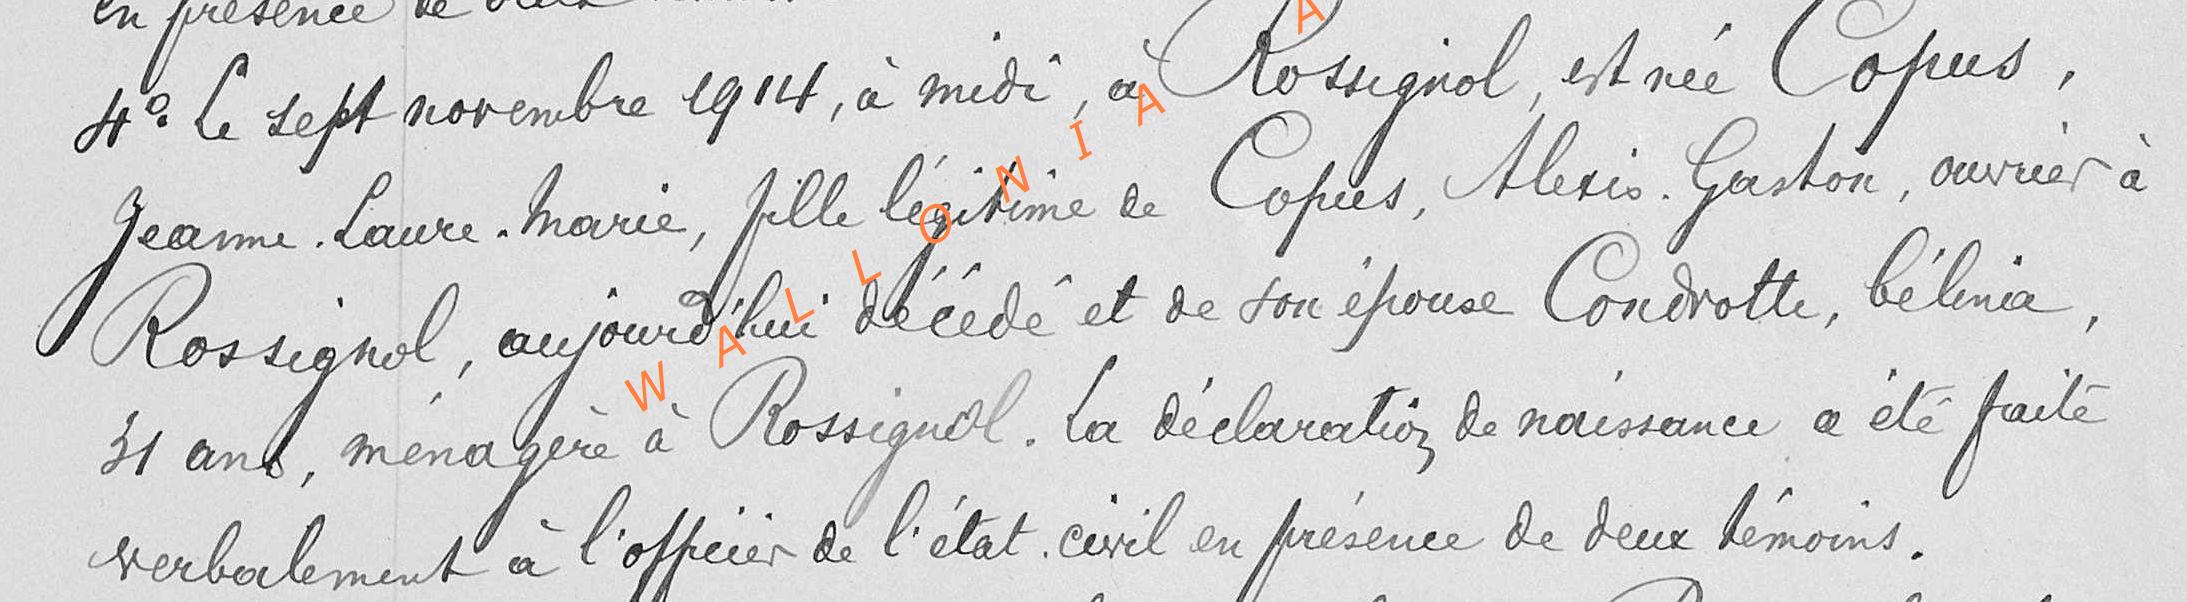 en présence de deux
4° Le sept novembre 1914, à midi, à Rossignol, est née Copus,
Jeanne-Laure-Marie, fille légitime de Copus, Alexis-Gaston, ouvrier à
Rossignol, aujourd'hui décédé et de son épouse Condrotte, Célinia,
31 ans, ménagère à Rossignol. La déclaration de naissance a été faite
verbalement à l'officier de l'état-civil en présence de deux témoins.
WALLONIA A